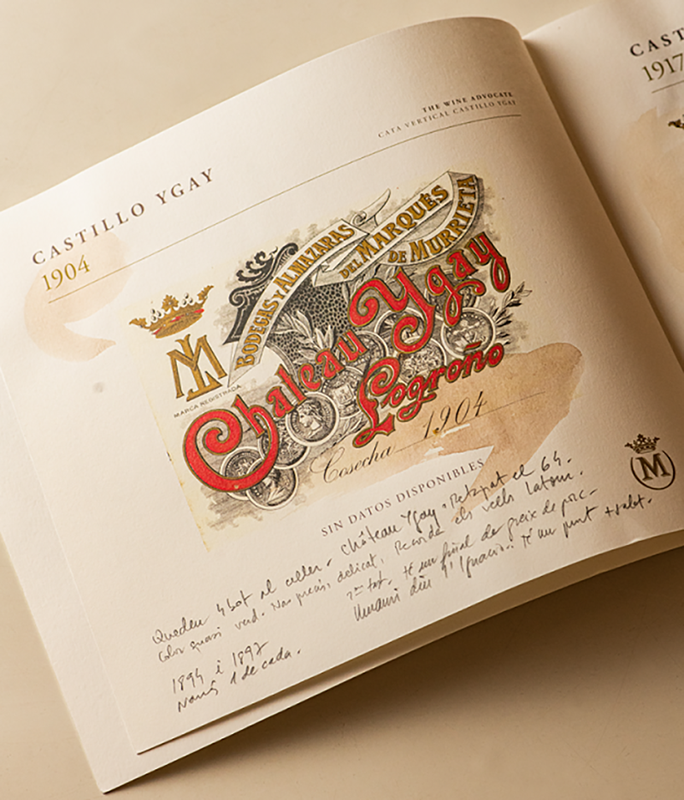 CASTILLO YGAY
1904
THE WINE ADVOCATE
CATA VERTICAL CASTILLO YGAY
BODEGAS Y ALMAZARAS
DEL MARQUÉS
DE MURRIETA
M
MARCA REGISTRADA
Chateau Ygay
Logroño
Cosecha 1904
SIN DATOS DISPONIBLES
M
Queden 4 bot al celler. Château Ygay. Retapat el 64.
Color quasi verd. Nas precís, delicat. Recorda els vells
2on tast. Té un final de greix de
Umami diu l'Ignacio. Té un punt + salat.
1894 i 1897
Només 1 de cada.
CAST
1917